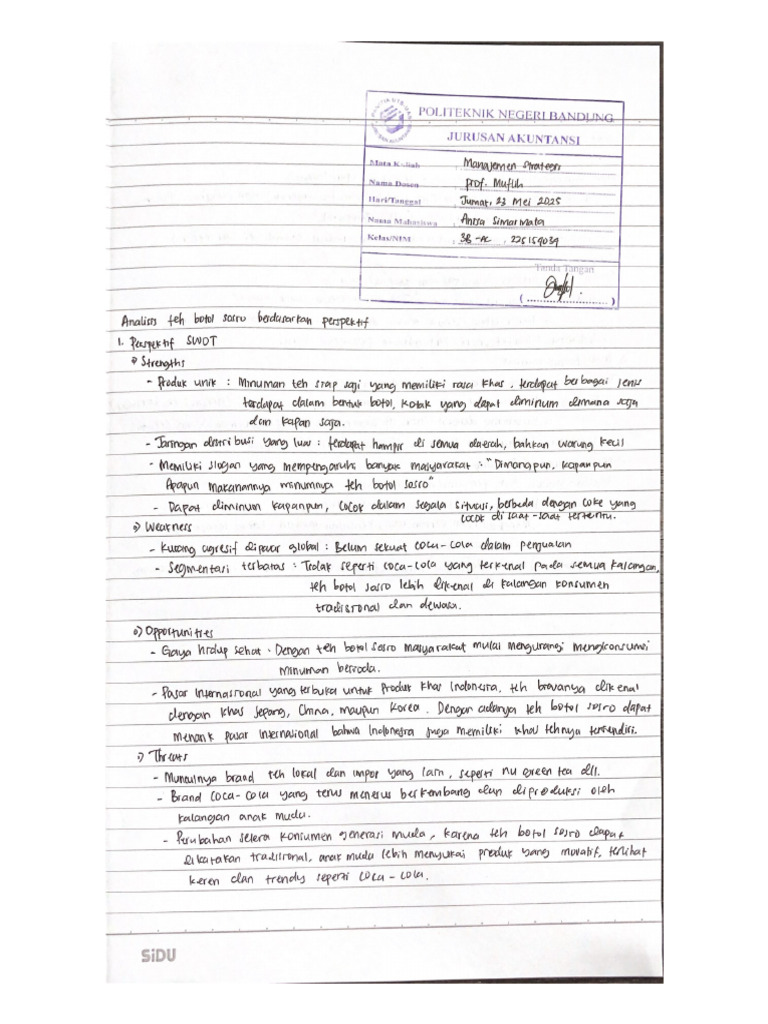 POLITEKNIK NEGERI BANDUNG
JURUSAN AKUNTANSI
Mata Kuliah Manajemen Strategi
Nama Dosen Prof. Muflih
Hari/Tanggal Jumat, 23 Mei 2025
Nama Mahasiswa Anisa Simarmata
Kelas/NIM 3B-AC, 225154039
Tanda Tangan
(....................)
Analisis teh botol sosro berdasarkan perspektif
1. Perspektif SWOT
Strengths
- Produk unik : Minuman teh siap saji yang memiliki rasa khas, terdapat berbagai jenis
terdapat dalam bentuk botol, kotak yang dapat diminum dimana saja
dan kapan saja.
- Jaringan distribusi yang luas : terdapat hampir di semua daerah, bahkan warung kecil
- Memiliki slogan yang mempengaruhi banyak masyarakat : "Dimanapun, kapanpun
Apapun makanannya minumnya teh botol sosro"
- Dapat diminum kapanpun, cocok dalam segala situasi, berbeda dengan coke yang
cocok di saat-saat tertentu.
Weakness
- Kurang agresif dipasar global : Belum sekuat coca-cola dalam penjualan
- Segmentasi terbatas : Tidak seperti coca-cola yang terkenal pada semua kalangan,
teh botol sosro lebih dikenal di kalangan konsumen
tradisional dan dewasa.
Opportunities
- Gaya hidup sehat : Dengan teh botol sosro masyarakat mulai mengurangi mengkonsumsi
minuman bersoda.
- Pasar Internasional yang terbuka untuk produk khas Indonesia, teh biasanya dikenal
dengan khas Jepang, China, maupun Korea. Dengan adanya teh botol sosro dapat
menarik pasar Internasional bahwa Indonesia juga memiliki khas tehnya tersendiri.
Threats
- Munculnya brand teh lokal dan impor yang lain, seperti nu green tea dll.
- Brand coca-cola yang terus menerus berkembang dan diproduksi oleh
kalangan anak muda.
- Perubahan selera konsumen generasi muda, karena teh botol sosro dapat
dikatakan tradisional, anak muda lebih menyukai produk yang inovatif, terlihat
keren dan trendy seperti coca-cola.
SiDU